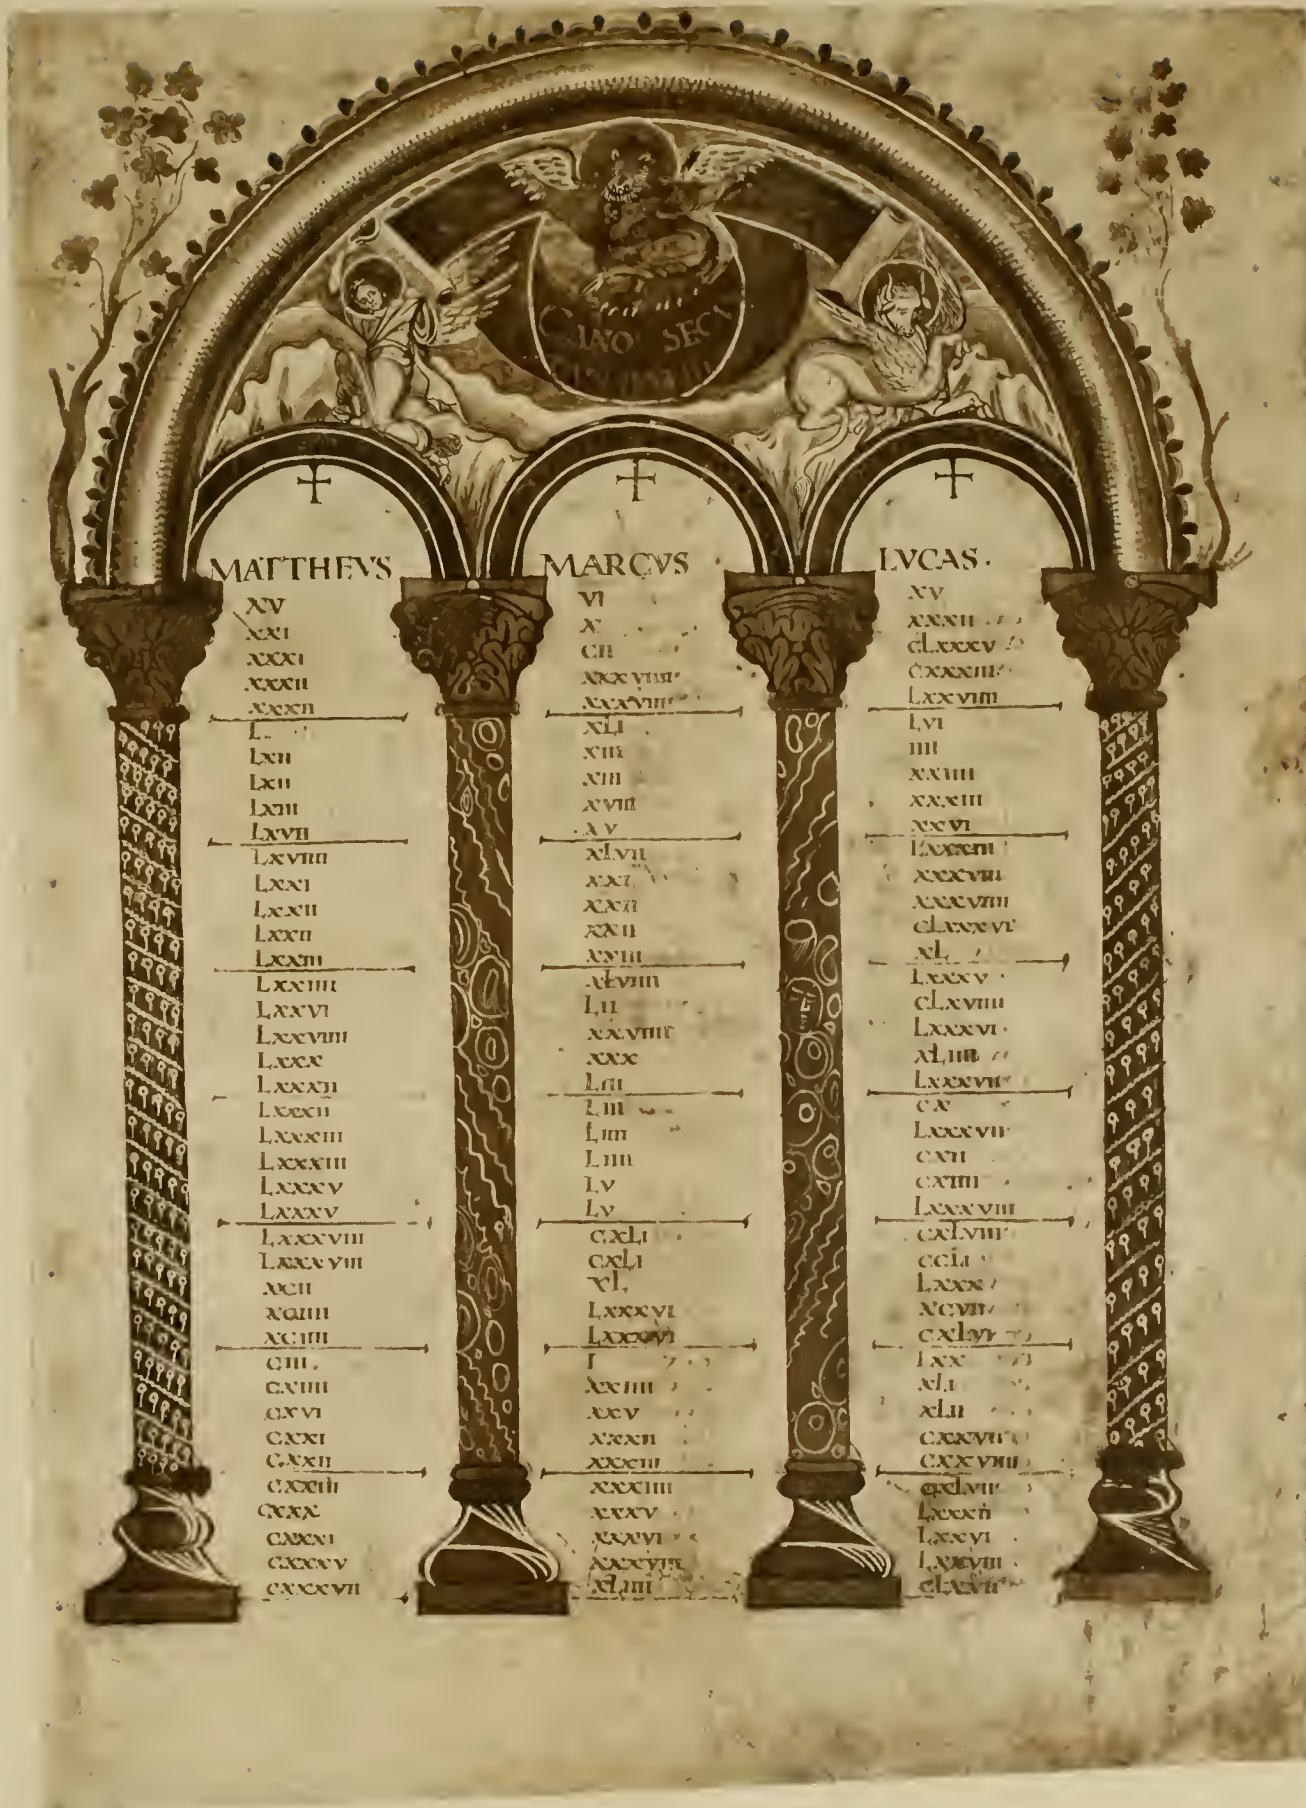 CANO SECV
MATTHEVS
XV
XXI
XXXI
XXXII
XXXII
L
LXII
LXII
LXIII
LXVII
LXVIIII
LXXI
LXXII
LXXII
LXXIII
LXXIIII
LXXVI
LXXVIIII
LXXX
LXXXII
LXXXII
LXXXIII
LXXXIII
LXXXV
LXXXV
LXXXVIII
LXXXVIII
XCII
XCIIII
XCIIII
CIII
CXIIII
CXVI
CXXI
CXXII
CXXIII
CXXX
CXXXI
CXXXV
CXXXVII
MARCVS
VI
X
CII
XXXVIIII
XXXVIIII
XLI
XIII
XIII
XVIII
XV
XLVII
XXI
XXII
XXII
XXIII
XLVIIII
LII
XXVIIII
XXX
LIII
LIII
LIIII
LIIII
LV
LV
CXLI
CXLI
XL
LXXXVI
LXXXVI
XXIIII
XXV
XXXII
XXXIII
XXXIIII
XXXV
XXXVI
XXXVIII
XLIIII
LVCAS.
XV
XXXII
CLXXXV
CXXXIII
LXXVIIII
LVI
IIII
XXIIII
XXXIII
XXVI
LXXXIII
XXXVIII
XXXVIIII
CLXXXVI
XL
LXXXV
CLXVIIII
LXXXVI
XLIIII
LXXXVII
CX
LXXXVII
CXII
CXIIII
LXXXVIII
CXLVIII
CCLI
LXXX
XCVII
CXLVI
LXX
XLI
XLII
CXXVII
CXXVIIII
CXLVII
LXXXII
LXXVI
LXXVIII
CLXVII